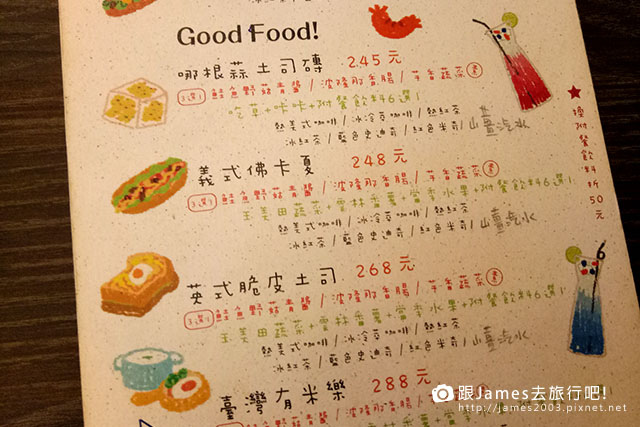 Good Food!
哪根蒜土司磚 245元
3選1 鮭魚野菇青醬/波隆那香腸/芋香蔬菜 素
吃草+咔咔+附餐飲料6選1
熱美式咖啡/冰冷萃咖啡/熱紅茶
冰紅茶/藍色史迪奇/紅色米奇/山薑汽水
★換附餐飲料折50元
義式佛卡夏 248元
3選1 鮭魚野菇青醬/波隆那香腸/芋香蔬菜 素
玉美田蔬菜+雲林番薯+當季水果+附餐飲料6選1
熱美式咖啡/冰冷萃咖啡/熱紅茶
冰紅茶/藍色史迪奇/紅色米奇/山薑汽水
英式脆皮土司 268元
3選1 鮭魚野菇青醬/波隆那香腸/芋香蔬菜 素
玉美田蔬菜+雲林番薯+當季水果+附餐飲料6選1
熱美式咖啡/冰冷萃咖啡/熱紅茶
冰紅茶/藍色史迪奇/紅色米奇/山薑汽水
臺灣有米樂 288元
3選1 鮭魚野菇青醬/波隆那香腸
跟James去旅行吧!
http://james2003.pixnet.net